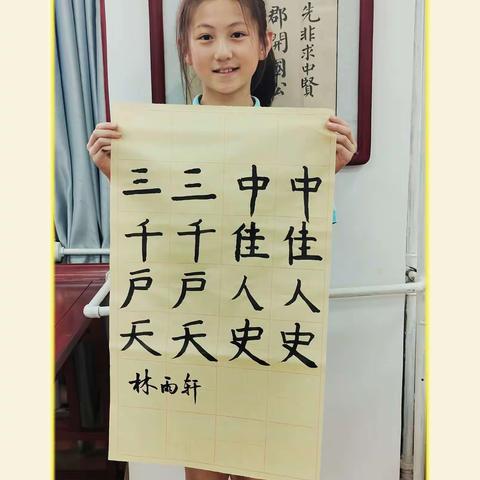 先非求中賢
郡開國公
中佳人史
中佳人史
三千戶天
三千戶天
林雨轩